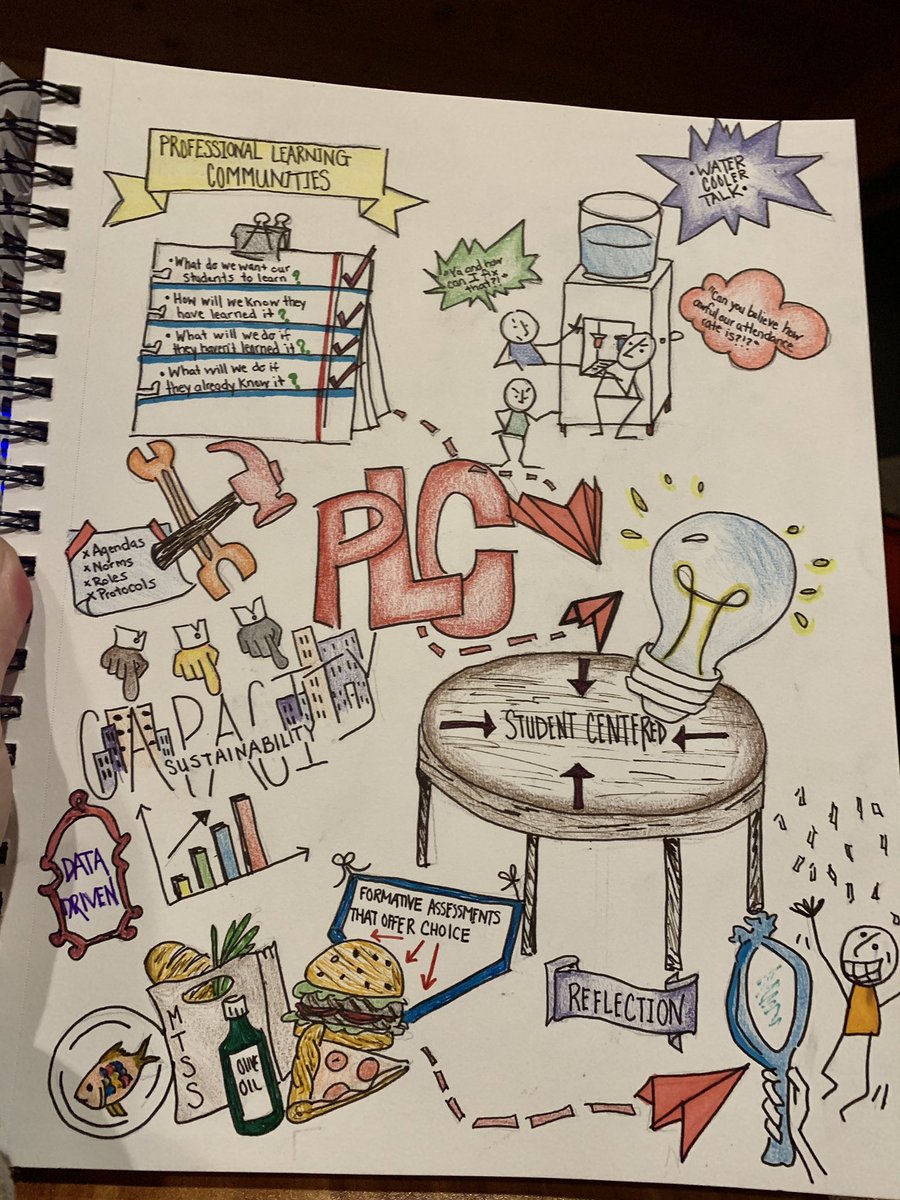 PROFESSIONAL LEARNING
COMMUNITIES
• What do we want our
students to learn?
• How will we know they
have learned it?
• What will we do if
they haven't learned it?
• What will we do if
they already know it?
• WATER
COOLER
TALK •
and how
can I fix
that?!"
"Can you believe how
awful our attendance
rate is?!?"
PLC
x Agendas
x Norms
x Roles
x Protocols
CAPACITY
SUSTAINABILITY
STUDENT CENTERED
DATA
DRIVEN
FORMATIVE ASSESSMENTS
THAT OFFER CHOICE
MTSS
OLIVE
OIL
REFLECTION